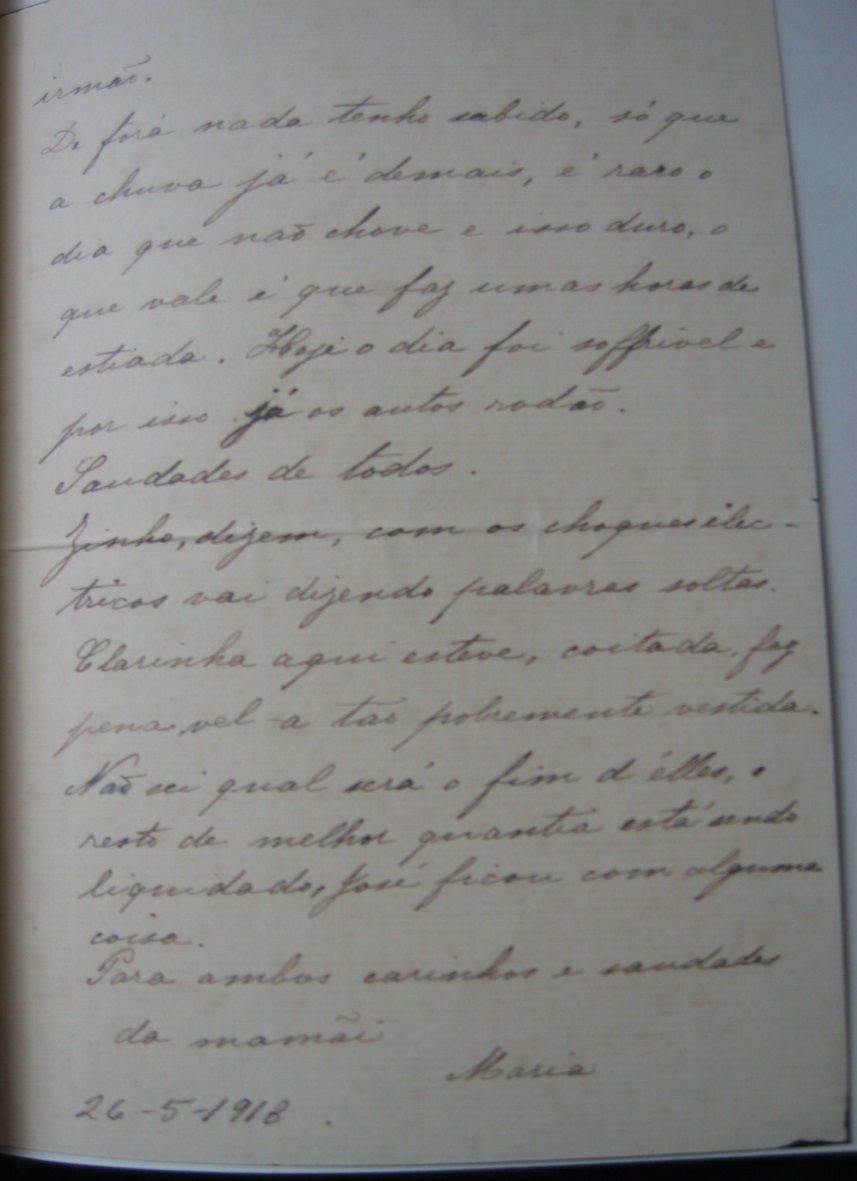 irmão.
De fóra nada tenho sabido, só que
a chuva já é demais, é raro o
dia que não chove e isso duro, o
que vale é que faz umas horas de
estiada. Hoje o dia foi soffrivel e
por isso já os autos rodão.
Saudades de todos.
Zinho, dizem, com os choques elec-
tricos vai dizendo palavras soltas.
Clarinha aqui esteve, coitada, faz
pena, vel-a tão pobremente vestida.
Não sei qual será o fim d'élles, o
resto de melhor quantia está sendo
liquidado, José ficou com alguma
coisa.
Para ambos carinhos e saudades
da mamãi
Maria
26-5-1918.